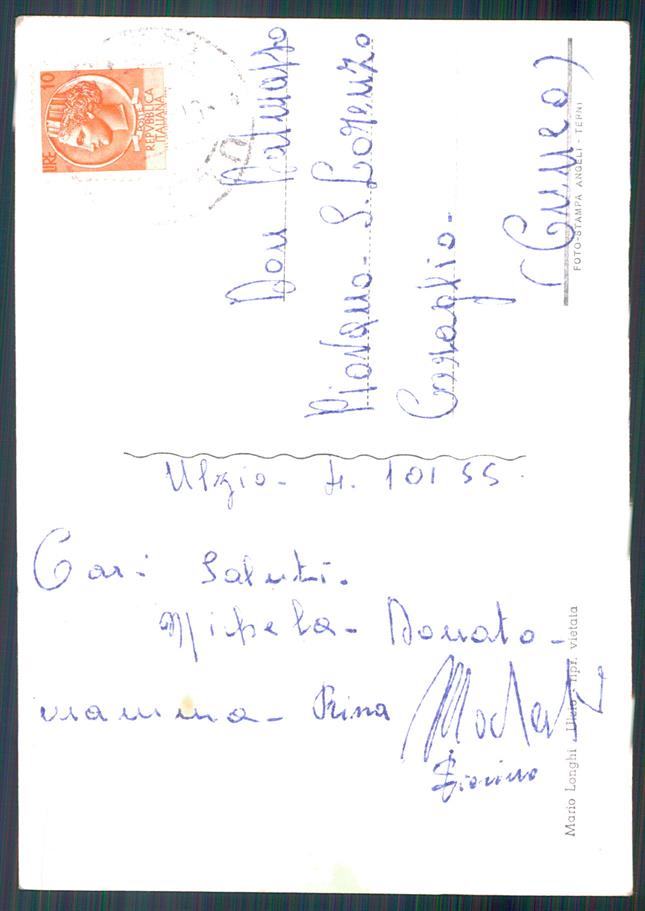 LIRE 10
REPVBBLICA
ITALIANA
Don
Piovano - S. Lorenzo
Caraglio -
(Cuneo)
FOTO-STAMPA ANGELI - TERNI
Ulzio - 4. 10 1 55.
Cari Saluti.
Michela - Donato -
mamma - Rina
Giovino
Mario Longhi - Ulzio - ripr. vietata